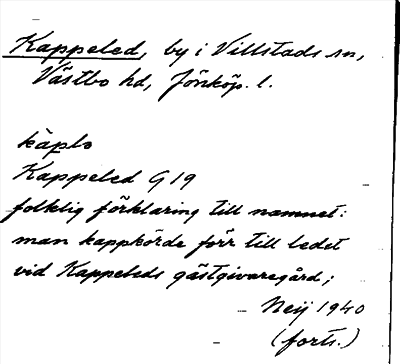 Kappeled, by i Villstads sn,
Västbo hd, Jönköp. l.
käplo
Kappeled G 19
folklig förklaring till namnet:
man kappkörde förr till ledet
vid Kappeleds gästgivaregård;
Neij 1940
(forts.)